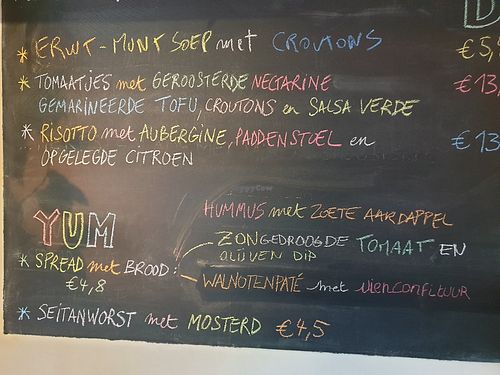 * ERWT-MUNT SOEP met CROUTONS €5,
* TOMAATJES met GEROOSTERDE NECTARINE €13,
GEMARINEERDE TOFU, CROUTONS en SALSA VERDE
* RISOTTO met AUBERGINE, PADDENSTOEL en €13
OPGELEGDE CITROEN
YUM
HUMMUS met ZOETE AARDAPPEL
* SPREAD met BROOD:
€4,8
ZONGEDROOGDE TOMAAT EN
OLIJVEN DIP
WALNOTENPATÉ met UIENCONFITUUR
* SEITANWORST met MOSTERD €4,5